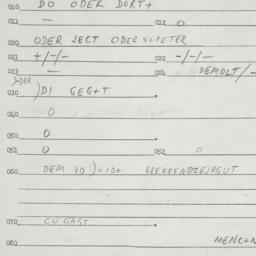 010 DO ODER DORT+
011 — 012 O
020 ODER JECT ODER S+PETER
021 +/-/- 022 -/-/-
023 — 024 DEMOLT/-
030 )DI GEG+T
040 O
050 O
051 O 052 O
060 DEM )=ID+
070 CU GAST
080 MENC+N